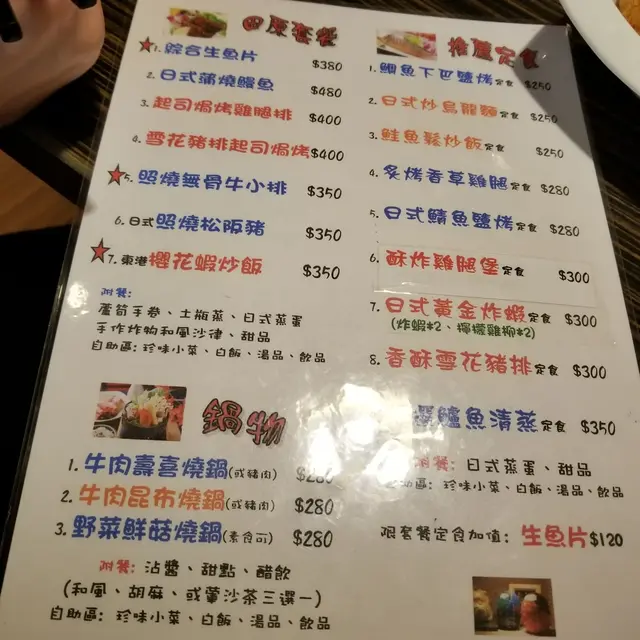 田原套餐
★1. 綜合生魚片 $380
2. 日式蒲燒鰻魚 $480
3. 起司焗烤雞腿排 $400
4. 雪花豬排起司焗烤 $400
★5. 照燒無骨牛小排 $350
6. 日式照燒松阪豬 $350
★7. 東港櫻花蝦炒飯 $350
附餐:
蘆筍手卷、土瓶蒸、日式蒸蛋
手作炸物和風沙律、甜品
自助區: 珍味小菜、白飯、湯品、飲品
鍋物
1. 牛肉壽喜燒鍋(或豬肉) $280
2. 牛肉昆布燒鍋(或豬肉) $280
3. 野菜鮮菇燒鍋(素食可) $280
附餐: 沾醬、甜點、醋飲
(和風、胡麻、或薰沙茶三選一)
自助區: 珍味小菜、白飯、湯品、飲品
推薦定食
1. 鯛魚下巴鹽烤定食 $250
2. 日式炒烏龍麵定食 $250
3. 鮭魚鬆炒飯定食 $250
4. 炙烤香草雞腿定食 $280
5. 日式鯖魚鹽烤定食 $280
6. 酥炸雞腿堡定食 $300
7. 日式黃金炸蝦定食 $300
(炸蝦*2、檸檬雞柳*2)
8. 香酥雪花豬排定食 $300
鱸魚清蒸定食 $350
附餐: 日式蒸蛋、甜品
自助區: 珍味小菜、白飯、湯品、飲品
限套餐定食加值: 生魚片$120